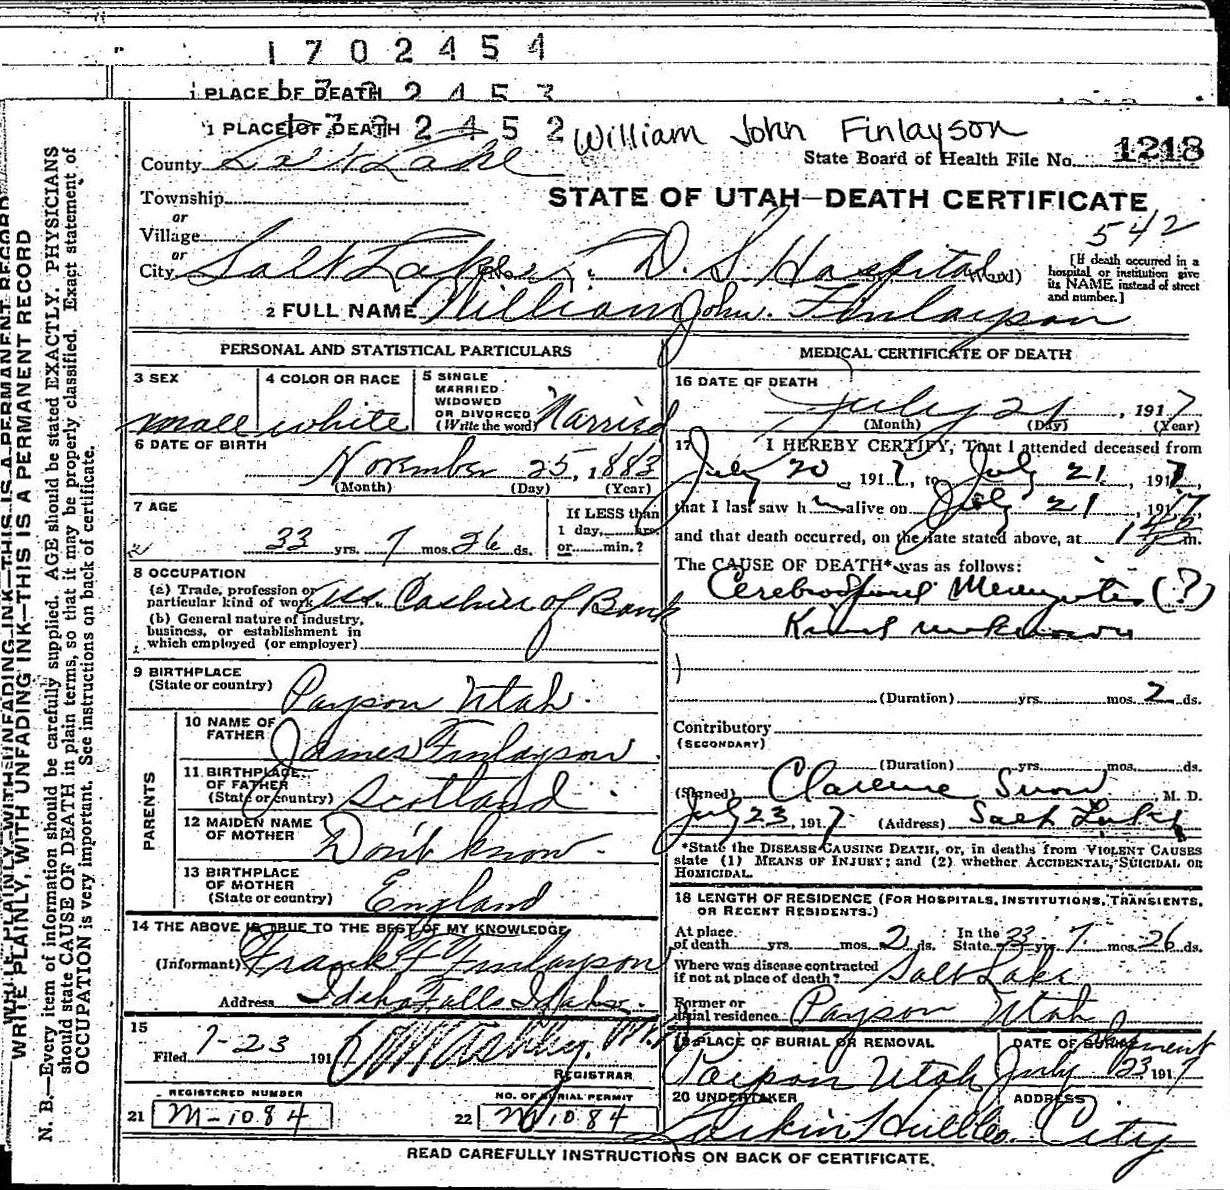 1702454
1 PLACE OF DEATH 2453
1 PLACE OF DEATH 2452 William John Finlayson
County Salt Lake State Board of Health File No. 1218
Township STATE OF UTAH—DEATH CERTIFICATE
or
Village 542
or
City Salt Lake L. D. S. Hospital
[If death occurred in a
hospital or institution give
its NAME instead of street
and number.]
2 FULL NAME William John Finlayson
PERSONAL AND STATISTICAL PARTICULARS
3 SEX male
4 COLOR OR RACE white
5 SINGLE
MARRIED
WIDOWED
OR DIVORCED
(Write the word) Married
6 DATE OF BIRTH
November 25, 1883
(Month) (Day) (Year)
7 AGE
33 yrs. 7 mos. 26 ds.
If LESS than
1 day, hrs.
or min.?
8 OCCUPATION
(a) Trade, profession or
particular kind of work Ass. Cashier of Bank
(b) General nature of industry,
business, or establishment in
which employed (or employer)
9 BIRTHPLACE
(State or country) Payson Utah.
PARENTS
10 NAME OF
FATHER James Finlayson
11 BIRTHPLACE
OF FATHER
(State or country) Scotland
12 MAIDEN NAME
OF MOTHER Don't know.
13 BIRTHPLACE
OF MOTHER
(State or country) England
14 THE ABOVE IS TRUE TO THE BEST OF MY KNOWLEDGE
(Informant) Frank F Finlayson
Address Idaho Falls Idaho.
15
Filed 7-23 191
REGISTRAR
REGISTERED NUMBER
21 M-1084
NO. OF BURIAL PERMIT
22 M 1084
MEDICAL CERTIFICATE OF DEATH
16 DATE OF DEATH
July 21, 1917
(Month) (Day) (Year)
17 I HEREBY CERTIFY, That I attended deceased from
July 20, 1917, to July 21, 1917,
that I last saw h m alive on July 21, 1917,
and that death occurred, on the date stated above, at 1 45 m.
The CAUSE OF DEATH* was as follows:
Cerebrospinal Meningitis (?)
Kind unknown
(Duration) yrs. mos. 2 ds.
Contributory
(SECONDARY)
(Duration) yrs. mos. ds.
(Signed) Clarence Snow, M. D.
July 23, 1917. (Address) Salt Lake
*State the DISEASE CAUSING DEATH, or, in deaths from VIOLENT CAUSES
state (1) MEANS OF INJURY; and (2) whether ACCIDENTAL, SUICIDAL OR
HOMICIDAL.
18 LENGTH OF RESIDENCE (FOR HOSPITALS, INSTITUTIONS, TRANSIENTS,
OR RECENT RESIDENTS.)
At place
of death yrs. mos. 2 ds. In the State 33 yrs. 7 mos. 26 ds.
Where was disease contracted
if not at place of death? Salt Lake
Former or
usual residence Payson Utah
19 PLACE OF BURIAL OR REMOVAL
Payson Utah
DATE OF BURIAL
July 23 1917
20 UNDERTAKER
ADDRESS
City
READ CAREFULLY INSTRUCTIONS ON BACK OF CERTIFICATE.
WRITE PLAINLY, WITH UNFADING INK—THIS IS A PERMANENT RECORD
WRITE PLAINLY, WITH UNFADING INK—THIS IS A PERMANENT RECORD
N. B.—Every item of information should be carefully supplied. AGE should be stated EXACTLY. PHYSICIANS
should state CAUSE OF DEATH in plain terms, so that it may be properly classified. Exact statement of
OCCUPATION is very important. See instructions on back of certificate.